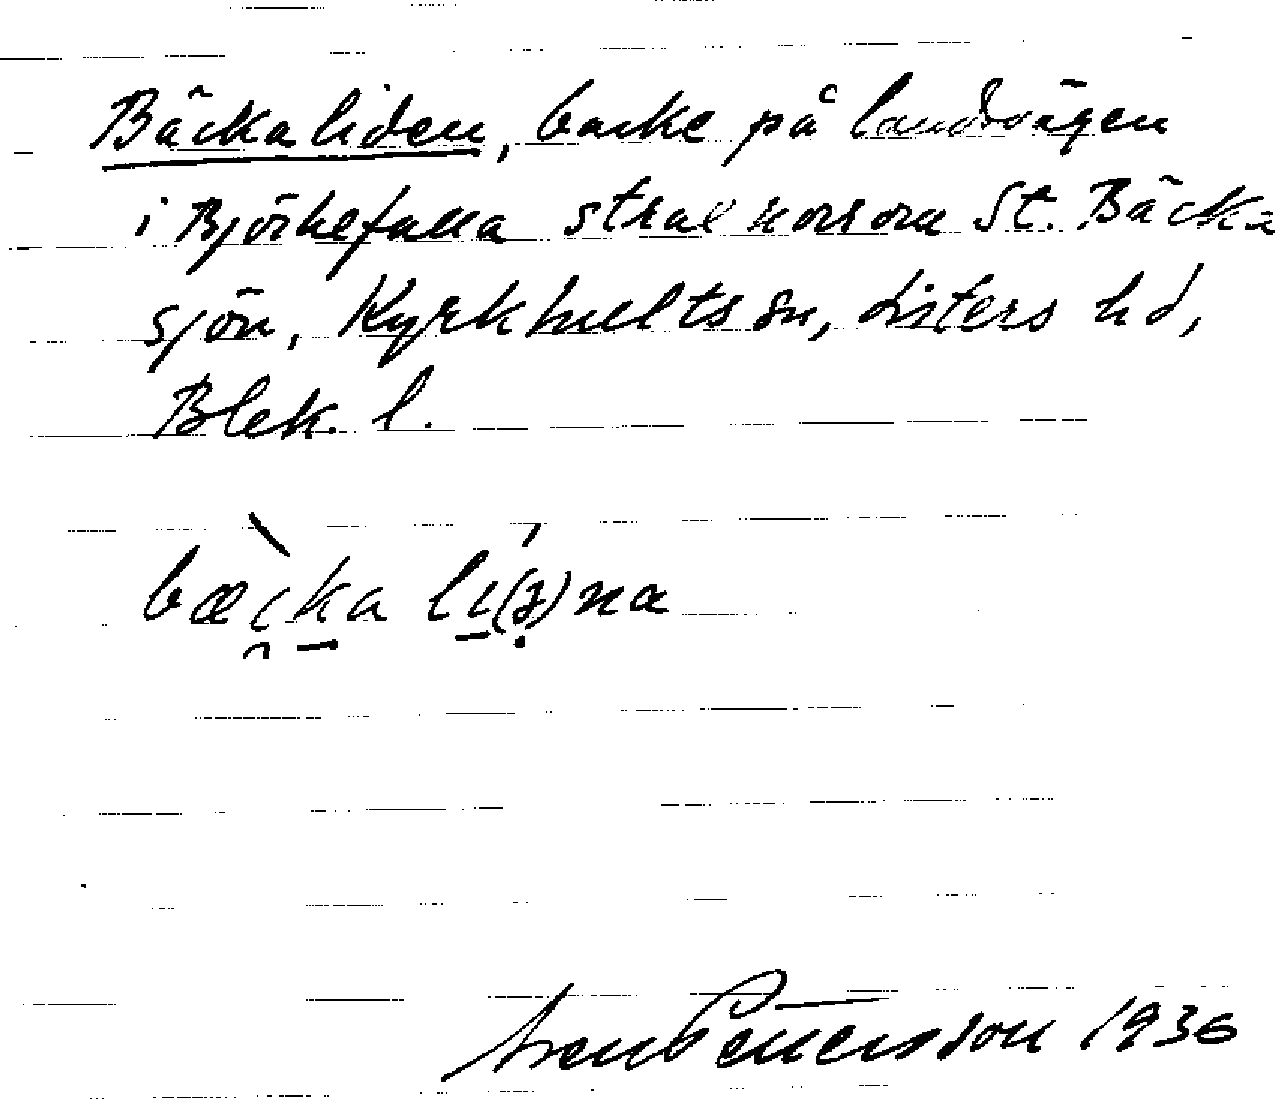 Bäckaliden, backe på landsvägen
i Björkefalla strax norrom St. Bäcka
sjön, Kyrkhults sn, Listers hd,
Blek. l.
Pettersson 1936